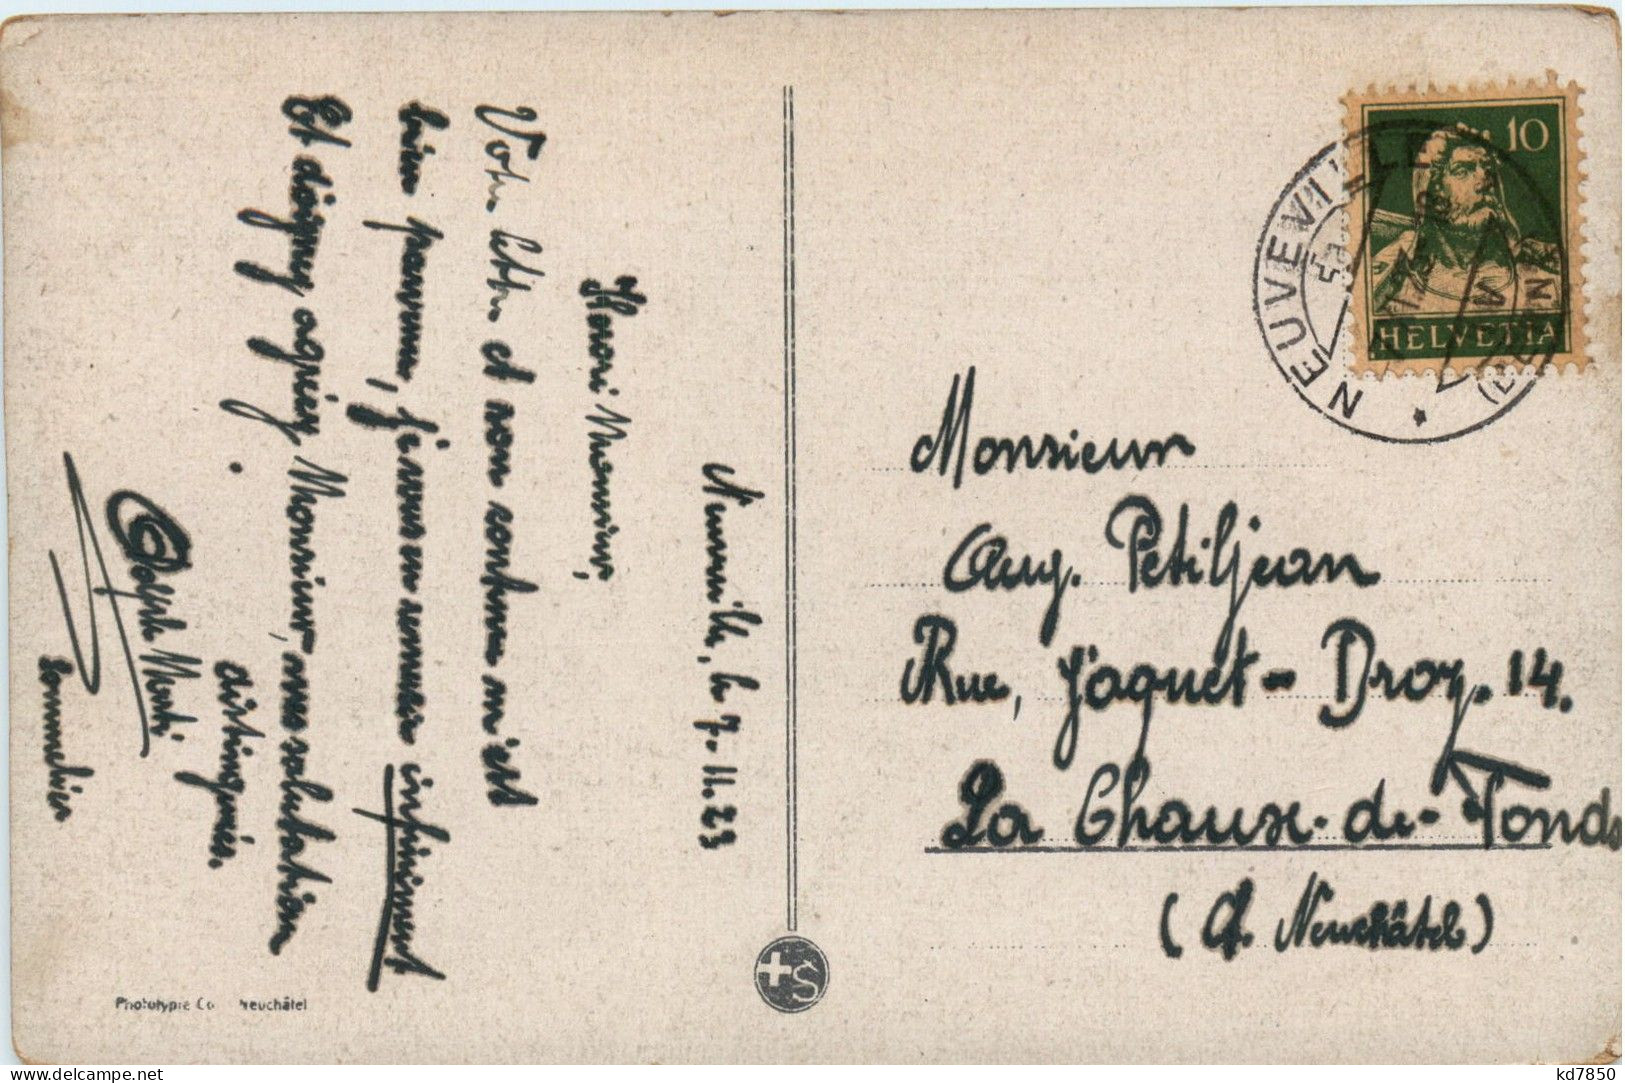 Neuveville, le 7.11.23
Honoré Monsieur,
Votre lettre et son contenu m'est
bien parvenu, je vous en remercie infiniment
Et daignez agréez, Monsieur, mes salutation
distinguées.
Adolphe Monti
Sommelier
Phototypie Co Neuchâtel
+S
10
HELVETIA
NEUVEVILLE
(BERN)
Monsieur
Aug. Petitjean
Rue, Jaquet-Droz. 14.
La Chaux-de-Fonds
(Ct. Neuchâtel)
delcampe.net
kd7850